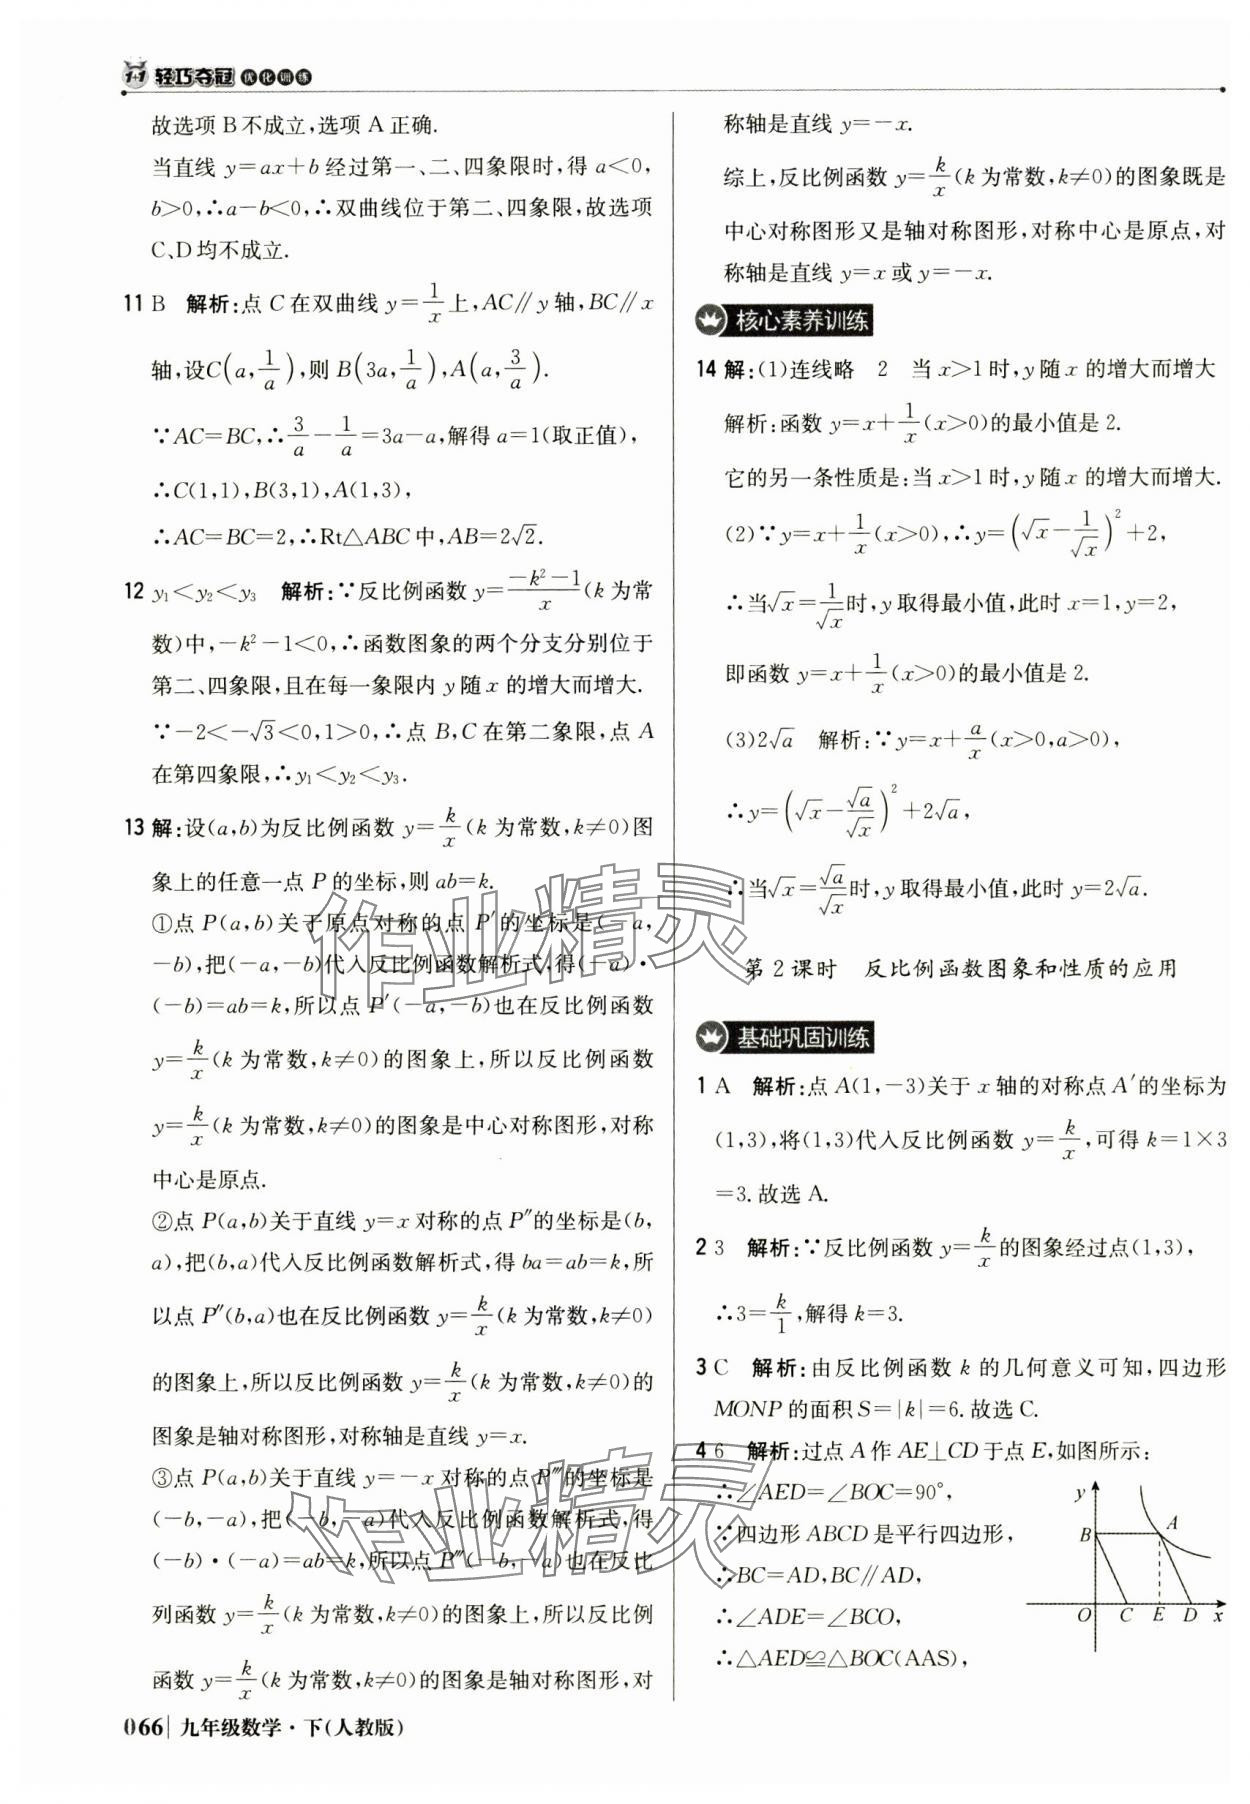 1+1 轻巧夺冠 优化训练
故选项 B 不成立,选项 A 正确.
当直线 y=ax+b 经过第一、二、四象限时,得 a<0,
b>0,∴a-b<0,∴双曲线位于第二、四象限,故选项
C、D 均不成立.
11 B 解析:点 C 在双曲线 y=1/x上,AC∥y 轴,BC∥x
轴,设C(a,1/a),则 B(3a,1/a),A(a,3/a).
∵AC=BC,∴3/a-1/a=3a-a,解得 a=1(取正值),
∴C(1,1),B(3,1),A(1,3),
∴AC=BC=2,∴Rt△ABC 中,AB=2√2.
12 y₁<y₂<y₃ 解析:∵反比例函数 y=(-k²-1)/x(k 为常
数)中,-k²-1<0,∴函数图象的两个分支分别位于
第二、四象限,且在每一象限内 y随 x 的增大而增大.
∵-2<-√3<0,1>0,∴点 B,C 在第二象限,点 A
在第四象限,∴y₁<y₂<y₃.
13 解:设(a,b)为反比例函数 y=k/x(k 为常数,k≠0)图
象上的任意一点 P 的坐标,则 ab=k.
①点 P(a,b)关于原点对称的点 P′的坐标是(-a,
-b),把(-a,-b)代入反比例函数解析式,得(-a)·
(-b)=ab=k,所以点 P′(-a,-b)也在反比例函数
y=k/x(k 为常数,k≠0)的图象上,所以反比例函数
y=k/x(k 为常数,k≠0)的图象是中心对称图形,对称
中心是原点.
②点 P(a,b)关于直线 y=x 对称的点 P″的坐标是(b,
a),把(b,a)代入反比例函数解析式,得 ba=ab=k,所
以点 P″(b,a)也在反比例函数 y=k/x(k 为常数,k≠0)
的图象上,所以反比例函数 y=k/x(k 为常数,k≠0)的
图象是轴对称图形,对称轴是直线 y=x.
③点 P(a,b)关于直线 y=-x 对称的点 P‴的坐标是
(-b,-a),把(-b,-a)代入反比例函数解析式,得
(-b)·(-a)=ab=k,所以点 P‴(-b,-a)也在反比
列函数 y=k/x(k 为常数,k≠0)的图象上,所以反比例
函数 y=k/x(k 为常数,k≠0)的图象是轴对称图形,对
称轴是直线 y=-x.
综上,反比例函数 y=k/x(k 为常数,k≠0)的图象既是
中心对称图形又是轴对称图形,对称中心是原点,对
称轴是直线 y=x 或 y=-x.
核心素养训练
14 解:(1)连线略 2 当 x>1 时,y 随 x 的增大而增大
解析:函数 y=x+1/x(x>0)的最小值是 2.
它的另一条性质是:当 x>1 时,y 随 x 的增大而增大.
(2)∵y=x+1/x(x>0),∴y=(√x-1/√x)²+2,
∴当√x=1/√x时,y 取得最小值,此时 x=1,y=2,
即函数 y=x+1/x(x>0)的最小值是 2.
(3)2√a 解析:∵y=x+a/x(x>0,a>0),
∴y=(√x-√a/√x)²+2√a,
∴当√x=√a/√x时,y 取得最小值,此时 y=2√a.
第 2 课时 反比例函数图象和性质的应用
基础巩固训练
1 A 解析:点 A(1,-3)关于 x 轴的对称点 A′的坐标为
(1,3),将(1,3)代入反比例函数 y=k/x,可得 k=1×3
=3.故选 A.
2 3 解析:∵反比例函数 y=k/x的图象经过点(1,3),
∴3=k/1,解得 k=3.
3 C 解析:由反比例函数 k 的几何意义可知,四边形
MONP 的面积 S=|k|=6.故选 C.
4 6 解析:过点 A 作 AE⊥CD 于点 E,如图所示:
∴∠AED=∠BOC=90°,
∵四边形 ABCD 是平行四边形,
∴BC=AD,BC∥AD,
∴∠ADE=∠BCO,
∴△AED≌△BOC(AAS),
y
B
A
O C E D x
作业精灵
作业精灵
066 九年级数学·下(人教版)